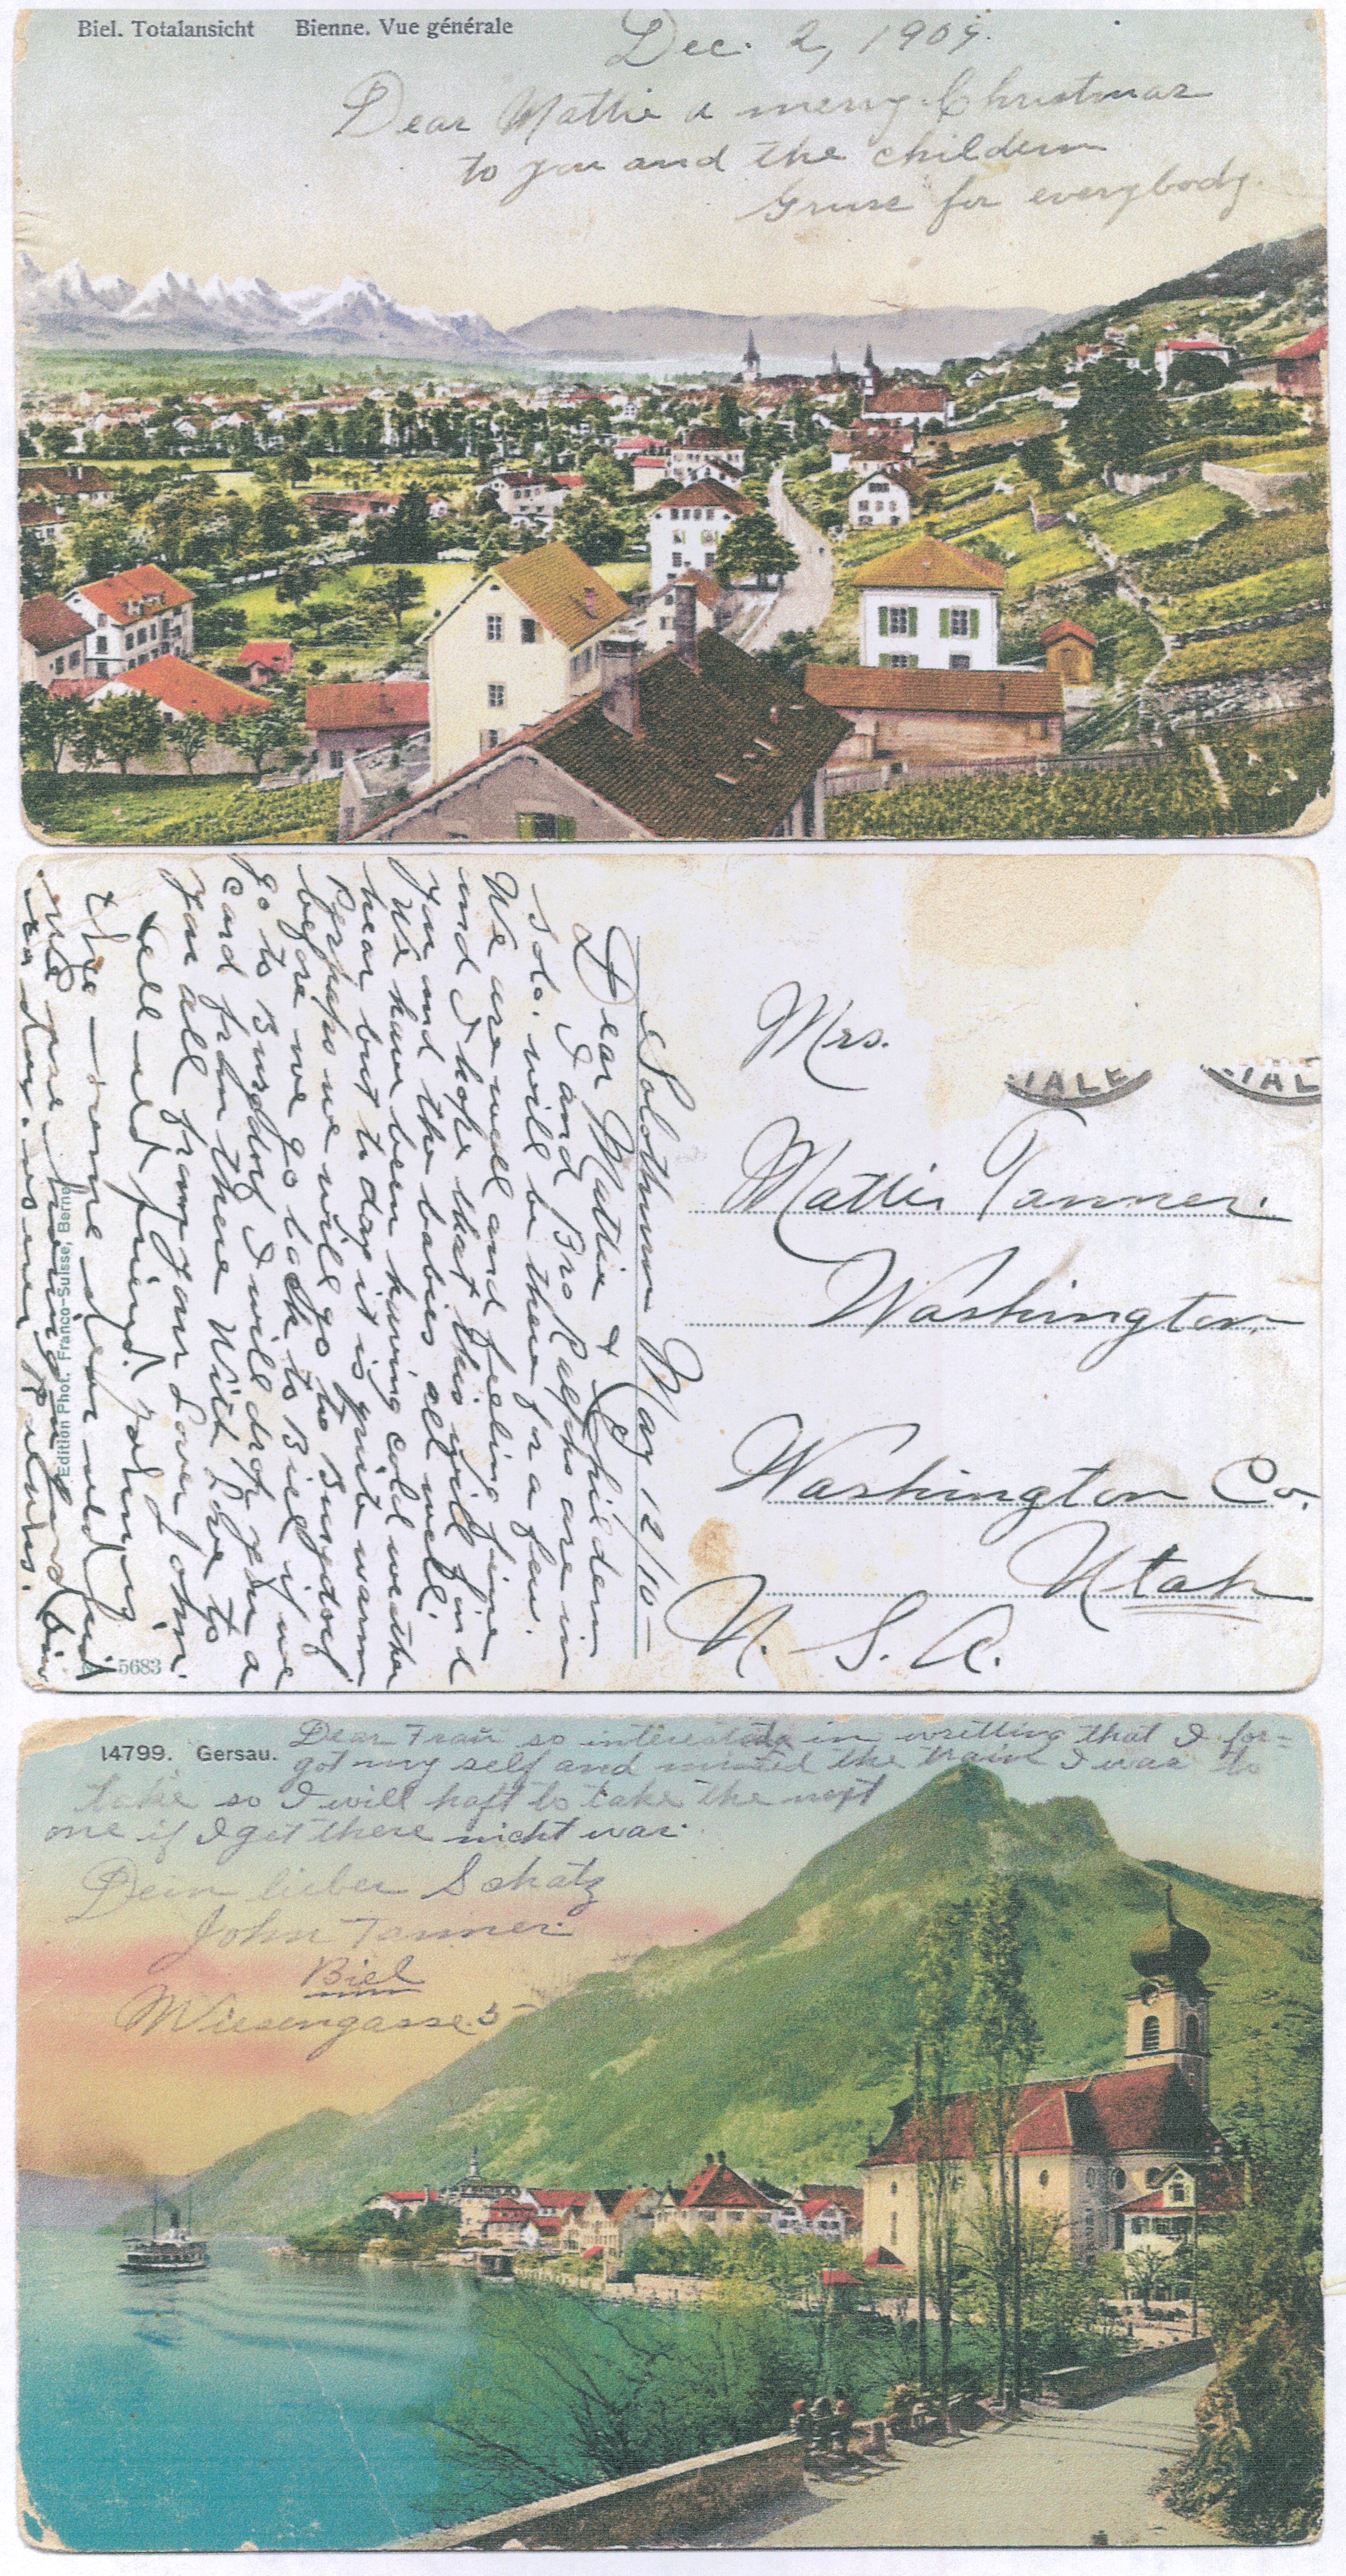 Biel. Totalansicht Bienne. Vue générale
Dec. 2, 1909.
Dear Mattie a merry Christmas
to you and the childern
Gruse for everybody.
Solothurn May 12/10
Dear Mattie & Childern
I and Bro Ralphs are in
Solo. will be there for a few.
We are well and feeling fine
and I hope that this will find
you and the babies all well.
We have been having cold weather
hear but to day it is quite warm
Perhaps we will go to Burgdorf
before we go back to Biel if we
go to Burgdorf I will drop you a
card from there With Love to
you all from your Lover John.
Edition Phot. Franco-Suisse, Berne
5683
Mrs.
Mattie Tanner.
Washington
Washington Co.
Utah
U. S. A.
14799. Gersau.
Dear Frau so interested in writting that I for=
got my self and missed the train I was to
take so I will haft to take the next
one if I get there nicht war.
Dein lieber Schatz
John Tanner.
Biel
Wiesengasse. 5